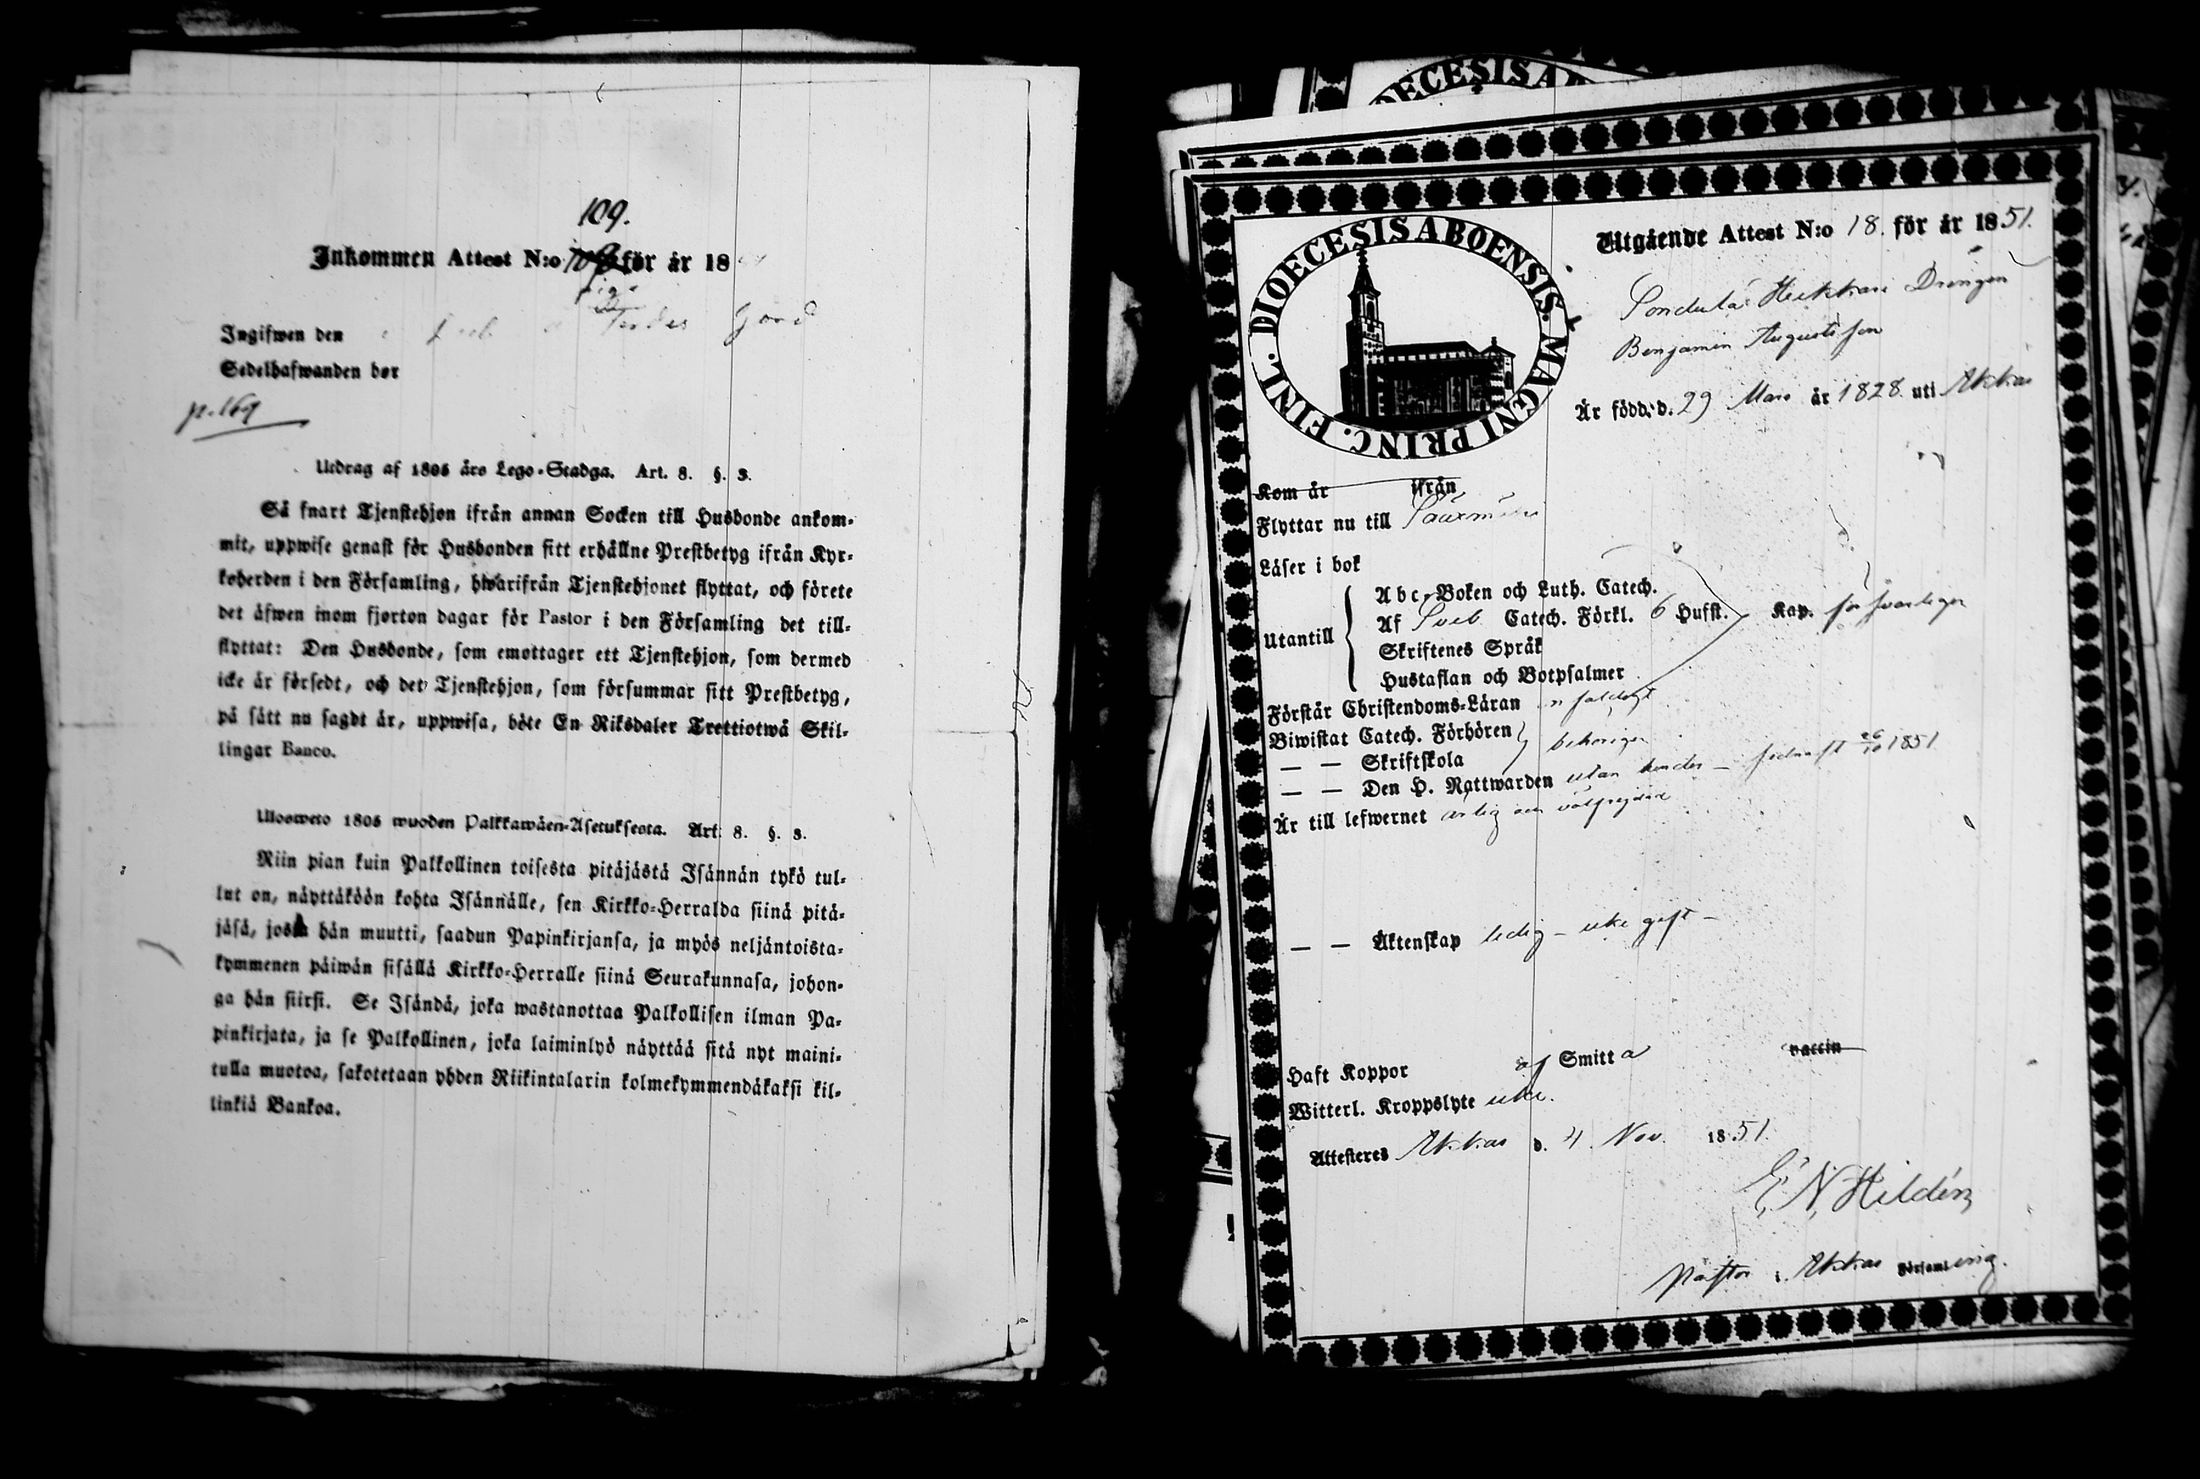 109.
Inkommen Attest N:o för år 18
Ingifwen den
Sedelhafwanden bor
p. 169
Utdrag af 1805 års Lego-Stadga. Art. 8. §. 3.
Så snart Tjenstehjon ifrån annan Socken till Husbonde ankom-
mit, uppwise genast för Husbonden sitt erhållne Prestbetyg ifrån Kyr-
koherden i den Församling, hwarifrån Tjenstehjonet flyttat, och förete
det äfwen inom fjorton dagar för Pastor i den Församling det till-
flyttat: Den Husbonde, som emottager ett Tjenstehjon, som dermed
icke är försedt, och det Tjenstehjon, som försummar sitt Prestbetyg,
på sätt nu sagdt är, uppwisa, böte En Riksdaler Trettiotwå Skil-
lingar Banco.
Ulosweto 1805 wuoden Palkkawäen-Asetuksesta. Art. 8. §. 3.
Niin pian kuin Palkollinen toisesta pitäjästä Isännän tykö tul-
lut on, näyttäköön kohta Isännälle, sen Kirkko-Herralda siinä pitä-
jäsä, josta hän muutti, saadun Papinkirjansa, ja myös neljäntoista-
kymmenen päiwän sisällä Kirkko-Herralle siinä Seurakunnasa, johon-
ga hän siirsi. Se Isändä, joka wastanottaa Palkollisen ilman Pa-
pinkirjata, ja se Palkollinen, joka laiminlyö näyttää sitä nyt maini-
tulla muotoa, sakotetaan yhden Riikintalarin kolmekymmendäkaksi kil-
linkiä Bankoa.
DIOECESIS A
DIOECESIS ABOENSIS. MAGNI PRINC. FINL.
Utgående Attest N:o 18. för år 1851.
Heikkari Drängen
Benjamin Augustsson
Är född d. 29 Mars år 1828 uti Akkas
Kom år ifrån
Flyttar nu till
Läser i bok
Utantill
Abc-Boken och Luth. Catech.
Af Sveb. Catech. Förkl. 6 Hufst. Kap. försvarligen
Skriftenes Språk
Hustaflan och Botpsalmer
Förstår Christendoms-Läran
Biwistat Catech. Förhören behörigen
— — Skriftskola
— — Den H. Nattwarden utan hinder – sednast 26/10 1851
Är till lefwernet ärlig och välfrejdad
— — Äktenskap ledig – icke gift –
Haft Koppor af Smitta vaccin
Witterl. Kroppslyte icke.
Attesteres Akkas d. 4 Nov. 1851.
E. N. Hildén
Pastor i Akkas Församling.